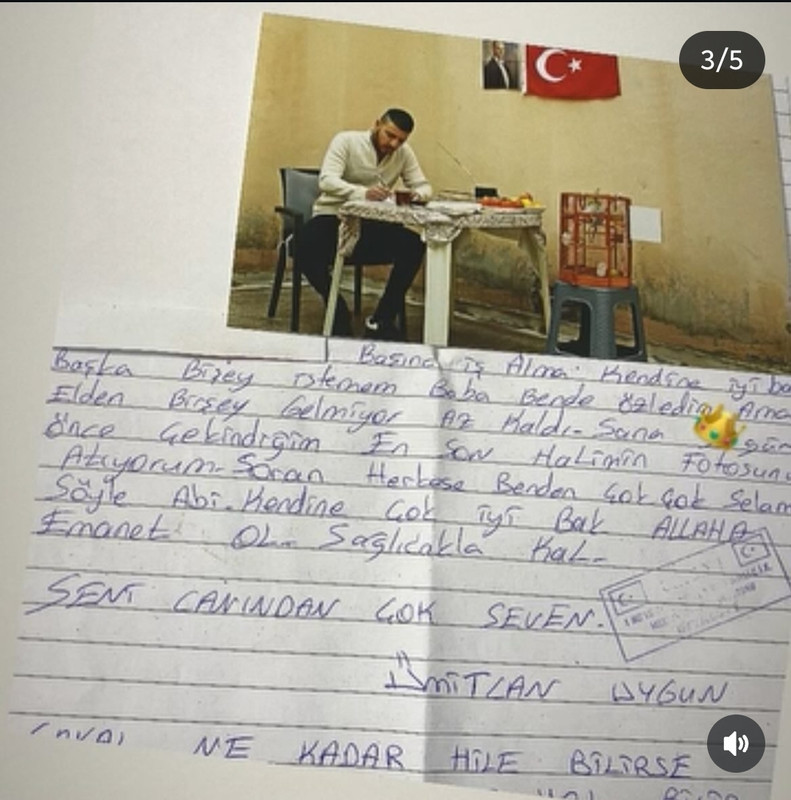 3/5
Başına iş Alma. Kendine iyi ba
Başka Birşey istemem Baba Bende Özledim Ama
Elden Birşey Gelmiyor Az Kaldı- Sana gün
Önce Çekindiğim En Son Halimin Fotosunu
Atıyorum- Soran Herkese Benden Çok Çok Selam
Söyle Abi. Kendine Çok iyi Bak ALLAHA
Emanet OL- Sağlıcakla Kal-
SENİ CANINDAN ÇOK SEVEN.
ÜMİTCAN UYGUN
NE KADAR HİLE BİLİRSE